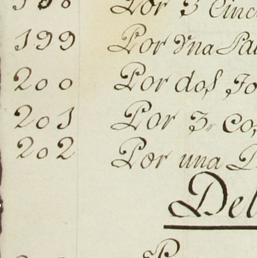 198 Por 3 Cinc
199 Por una
200 Por dos
201 Por 3. Co
202 Por una D
Del
P